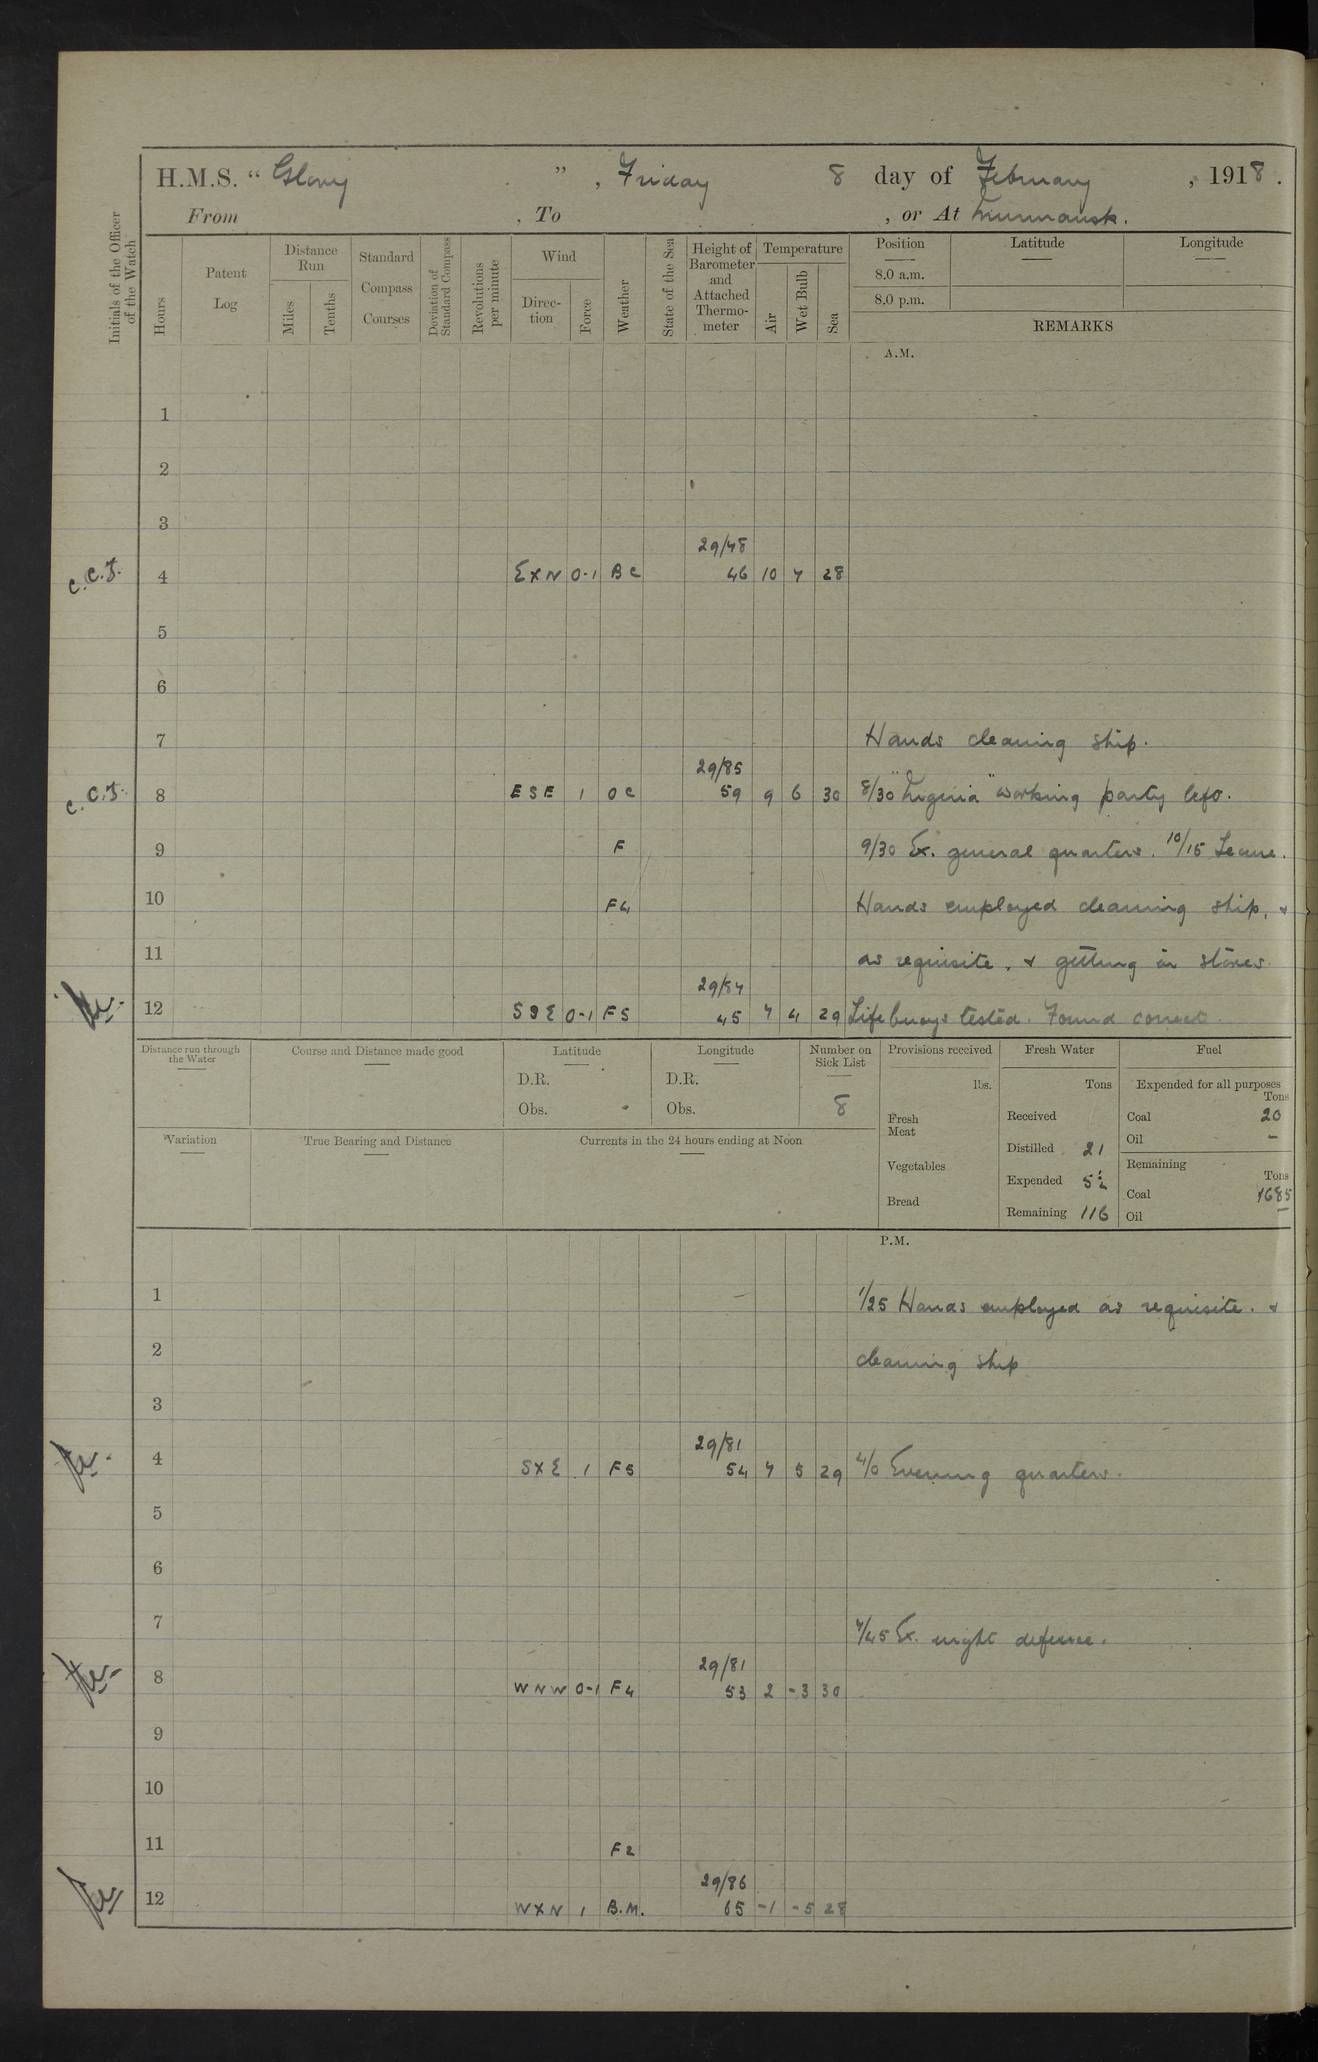 H.M.S. " Glory ", Friday 8 day of February, 1918.
From , To , or At Murmansk.
Initials of the Officer of the Watch
Hours
Patent Log
Distance Run
Miles
Tenths
Standard Compass Courses
Deviation of Standard Compass
Revolutions per minute
Wind
Direc-tion
Force
Weather
State of the Sea
Height of Barometer and Attached Thermo-meter
Temperature
Air
Wet Bulb
Sea
Position Latitude Longitude
8.0 a.m.
8.0 p.m.
REMARKS
A.M.
1
2
3
29/78
C.C.J. 4 E X N 0-1 B C 46 10 7 28
5
6
7 Hands cleaning ship.
29/85
C.C.J. 8 E S E 1 O C 59 9 6 30 8/30 working party left.
9 F 9/30 Ex. general quarters. 10/15 Secure.
10 F4 Hands employed cleaning ship, &
11 as requisite. & getting in stores.
29/84
12 S S E 0-1 F5 45 7 4 29 Lifebuoys tested. Found correct.
Distance run through the Water Course and Distance made good Latitude Longitude Number on Sick List Provisions received Fresh Water Fuel
D.R. D.R. lbs. Tons Expended for all purposes
Tons
Obs. Obs. 8 Fresh Meat Received Coal 20
Variation True Bearing and Distance Currents in the 24 hours ending at Noon Distilled 21 Oil –
Vegetables Remaining
Expended 5½ Tons
Bread Coal 1685
Remaining 116 Oil –
P.M.
1 1/25 Hands employed as requisite. &
2 cleaning ship
3
29/81
4 S X E 1 F5 54 7 5 29 4/0 Evening quarters.
5
6
7 7/45 Ex. night defence.
29/81
8 W N W 0-1 F4 53 2 -3 30
9
10
11 F2
29/86
12 W X N 1 B.M. 65 -1 -5 28